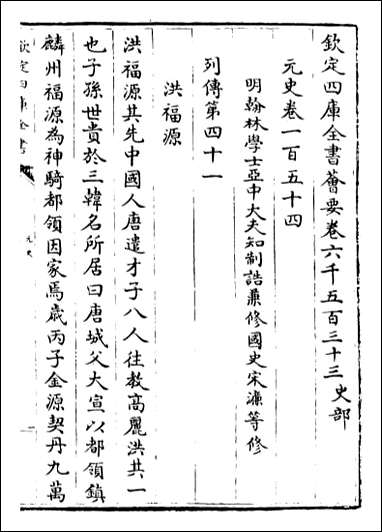 欽定四庫全書薈要卷六千五百三十三史部
元史卷一百五十四
明翰林學士亞中大夫知制誥兼修國史宋濂等修
列傳第四十一
洪福源
洪福源其先中國人唐遣才子八人往教高麗洪其一
也子孫世貴於三韓名所居曰唐城父大宣以都領鎮
麟州福源為神騎都領因家焉歲丙子金源契丹九萬
欽定四庫全書
元史
一